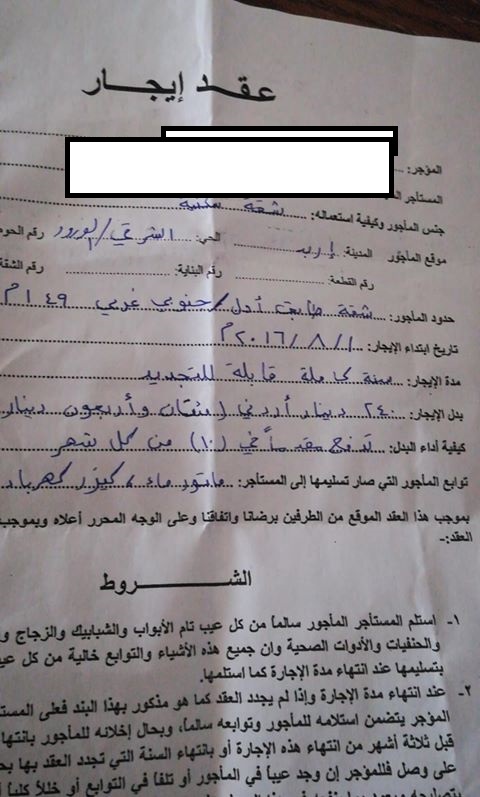 عقد إيجار
المؤجر:
المستأجر
جنس المأجور وكيفية استعماله: شقة سكنية
موقع المأجور المدينة: إربد الحي: الشرقي/ رقم الحوض
رقم القطعة: رقم البناية: رقم الشقة
حدود المأجور: شقة طابق أول/ جنوبي غربي ١٤٩م
تاريخ ابتداء الإيجار: ٢٠١٦/٨/١م
مدة الإيجار: سنة كاملة قابلة للتجديد
بدل الإيجار: ٢٤٠ دينار أردني (مئتان وأربعون دينار
كيفية أداء البدل: تدفع مقدماً في (١٠) من كل شهر
توابع المأجور التي صار تسليمها إلى المستأجر: ماتور ماء، كيزر كهرباء
بموجب هذا العقد الموقع من الطرفين برضانا واتفاقنا وعلى الوجه المحرر أعلاه وبموجب
العقد:-
الشروط
١- استلم المستأجر المأجور سالماً من كل عيب تام الأبواب والشبابيك والزجاج و
والحنفيات والأدوات الصحية وان جميع هذه الأشياء والتوابع خالية من كل عي
بتسليمها عند انتهاء مدة الإجارة كما استلمها.
٢- عند انتهاء مدة الإجارة وإذا لم يجدد العقد كما هو مذكور بهذا البند فعلى المست
المؤجر يتضمن استلامه للمأجور وتوابعه سالماً، وبحال إخلائه للمأجور بانتها
قبل ثلاثة أشهر من انتهاء هذه الإجارة أو بانتهاء السنة التي تجدد العقد بها بح
على وصل فللمؤجر إن وجد عيباً في المأجور أو تلفاً في التوابع أو خللاً كلياً أ